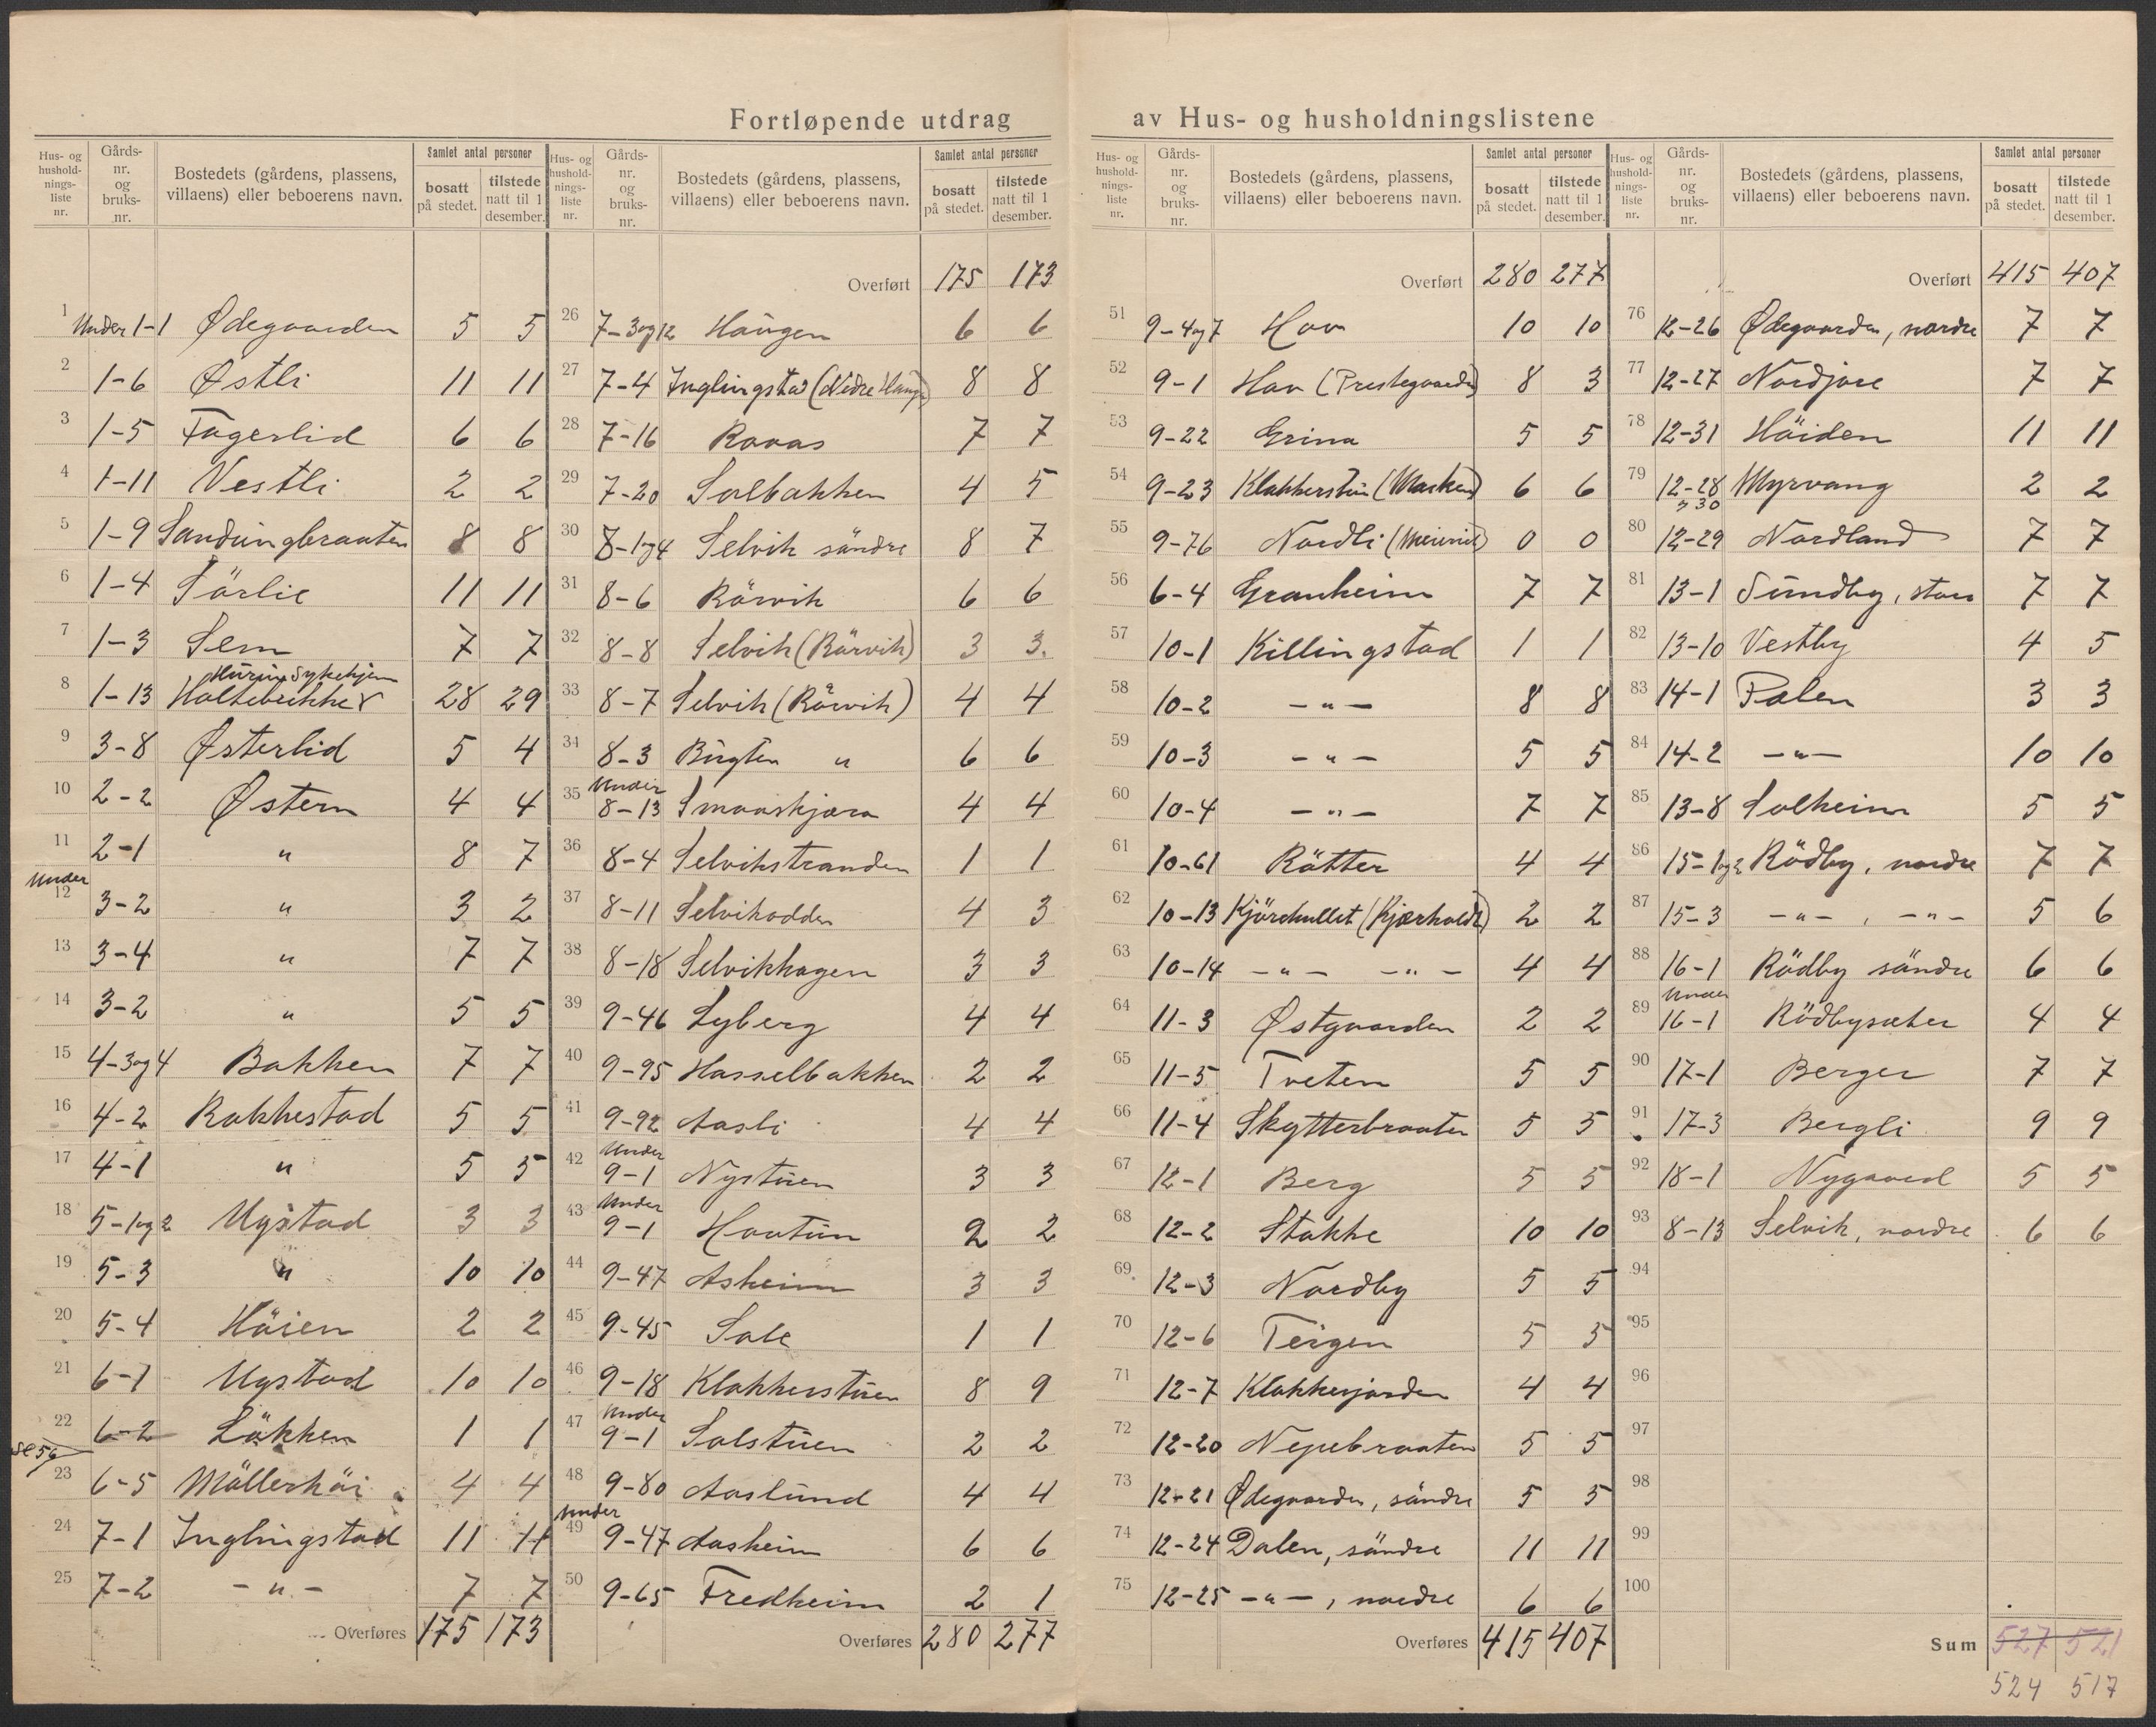 Fortløpende utdrag av Hus- og husholdningslistene
Hus- og husholdningsliste nr. Gårds- nr. og bruks- nr. Bostedets (gårdens, plassens, villaens) eller beboerens navn. Samlet antal personer bosatt på stedet. tilstede natt til 1 desember.
1 Under 1-1 Ødegaarden 5 5
2 1-6 Østli 11 11
3 1-5 Fagerlid 6 6
4 1-11 Vestli 2 2
5 1-9 Sandungbraaten 8 8
6 1-4 Sörlie 11 11
7 1-3 Sem 7 7
Hurum Sykehjem
8 1-13 Holtebekker 28 29
9 3-8 Østerlid 5 4
10 2-2 Østern 4 4
11 2-1 " 8 7
Under
12 3-2 " 3 2
13 3-4 " 7 7
14 3-2 " 5 5
15 4-3og4 Bakken 7 7
16 4-2 Rakkestad 5 5
17 4-1 " 5 5
18 5-1og2 Ugstad 3 3
19 5-3 " 10 10
20 5-4 Höien 2 2
21 6-1 Ugstad 10 10
22 6-2 Lökken 1 1
se 56
23 6-5 Möllerhöi 4 4
24 7-1 Inglingstad 11 11
25 7-2 -"- 7 7
Overføres 175 173
Hus- og husholdningsliste nr. Gårds- nr. og bruks- nr. Bostedets (gårdens, plassens, villaens) eller beboerens navn. Samlet antal personer bosatt på stedet. tilstede natt til 1 desember.
Overført 175 173
26 7-3og12 Haugen 6 6
27 7-4 Inglingstad (Nedre Haugen) 8 8
28 7-16 Raaas 7 7
29 7-20 Solbakken 4 5
30 8-1og4 Selvik söndre 8 7
31 8-6 Rörvik 6 6
32 8-8 Selvik (Rörvik) 3 3.
33 8-7 Selvik (Rörvik) 4 4
34 8-3 Bugten " 6 6
Under
35 8-13 Smaaskjæra 4 4
36 8-4 Selvikstranden 1 1
37 8-11 Selvikodden 4 3
38 8-18 Selvikhagen 3 3
39 9-46 Lyberg 4 4
40 9-95 Hasselbakken 2 2
41 9-92 Aasli 4 4
Under
42 9-1 Nystuen 3 3
Under
43 9-1 Hovtun 2 2
44 9-47 Asheim 3 3
45 9-45 Sole 1 1
46 9-18 Klokkerstuen 8 9
Under
47 9-1 Solstuen 2 2
48 9-80 Aaslund 4 4
Under
49 9-47 Aasheim 6 6
50 9-65 Fredheim 2 1
Overføres 280 277
Hus- og husholdningsliste nr. Gårds- nr. og bruks- nr. Bostedets (gårdens, plassens, villaens) eller beboerens navn. Samlet antal personer bosatt på stedet. tilstede natt til 1 desember.
Overført 280 277
51 9-4og7 Hov 10 10
52 9-1 Hov (Prestegaarden) 8 3
53 9-22 Grina 5 5
54 9-23 Klokkerstun 6 6
55 9-76 Nordli (Meieriet) 0 0
56 6-4 Granheim 7 7
57 10-1 Killingstad 1 1
58 10-2 -"- 8 8
59 10-3 -"- 5 5
60 10-4 -"- 7 7
61 10-61 Rötter 4 4
62 10-13 Kjörekullet (Kjærholdt) 2 2
63 10-14 -"- -"- 4 4
64 11-3 Østgaarden 2 2
65 11-5 Tveten 5 5
66 11-4 Skytterbraaten 5 5
67 12-1 Berg 5 5
68 12-2 Stokke 10 10
69 12-3 Nordby 5 5
70 12-6 Teigen 5 5
71 12-7 Klokkerjorden 4 4
72 12-20 Nepebraaten 5 5
73 12-21 Ødegaarden, söndre 5 5
74 12-24 Dalen, söndre 11 11
75 12-25 -"-, nordre 6 6
Overføres 415 407
Hus- og husholdningsliste nr. Gårds- nr. og bruks- nr. Bostedets (gårdens, plassens, villaens) eller beboerens navn. Samlet antal personer bosatt på stedet. tilstede natt til 1 desember.
Overført 415 407
76 12-26 Ødegaarden, nordre 7 7
77 12-27 Nordjore 7 7
78 12-31 Höiden 11 11
79 12-28 Myrvang 2 2
" 30
80 12-29 Nordland 7 7
81 13-1 Sundby, store 7 7
82 13-10 Vestby 4 5
83 14-1 Palen 3 3
84 14-2 -"- 10 10
85 13-8 Solheim 5 5
86 15-1og2 Rödby, nordre 7 7
87 15-3 -"-, -"- 5 6
88 16-1 Rödby söndre 6 6
Under
89 16-1 Rödbysæter 4 4
90 17-1 Berger 7 7
91 17-3 Bergli 9 9
92 18-1 Nygaard 5 5
93 8-13 Selvik, nordre 6 6
94
95
96
97
98
99
100
Sum 527 521
524 517